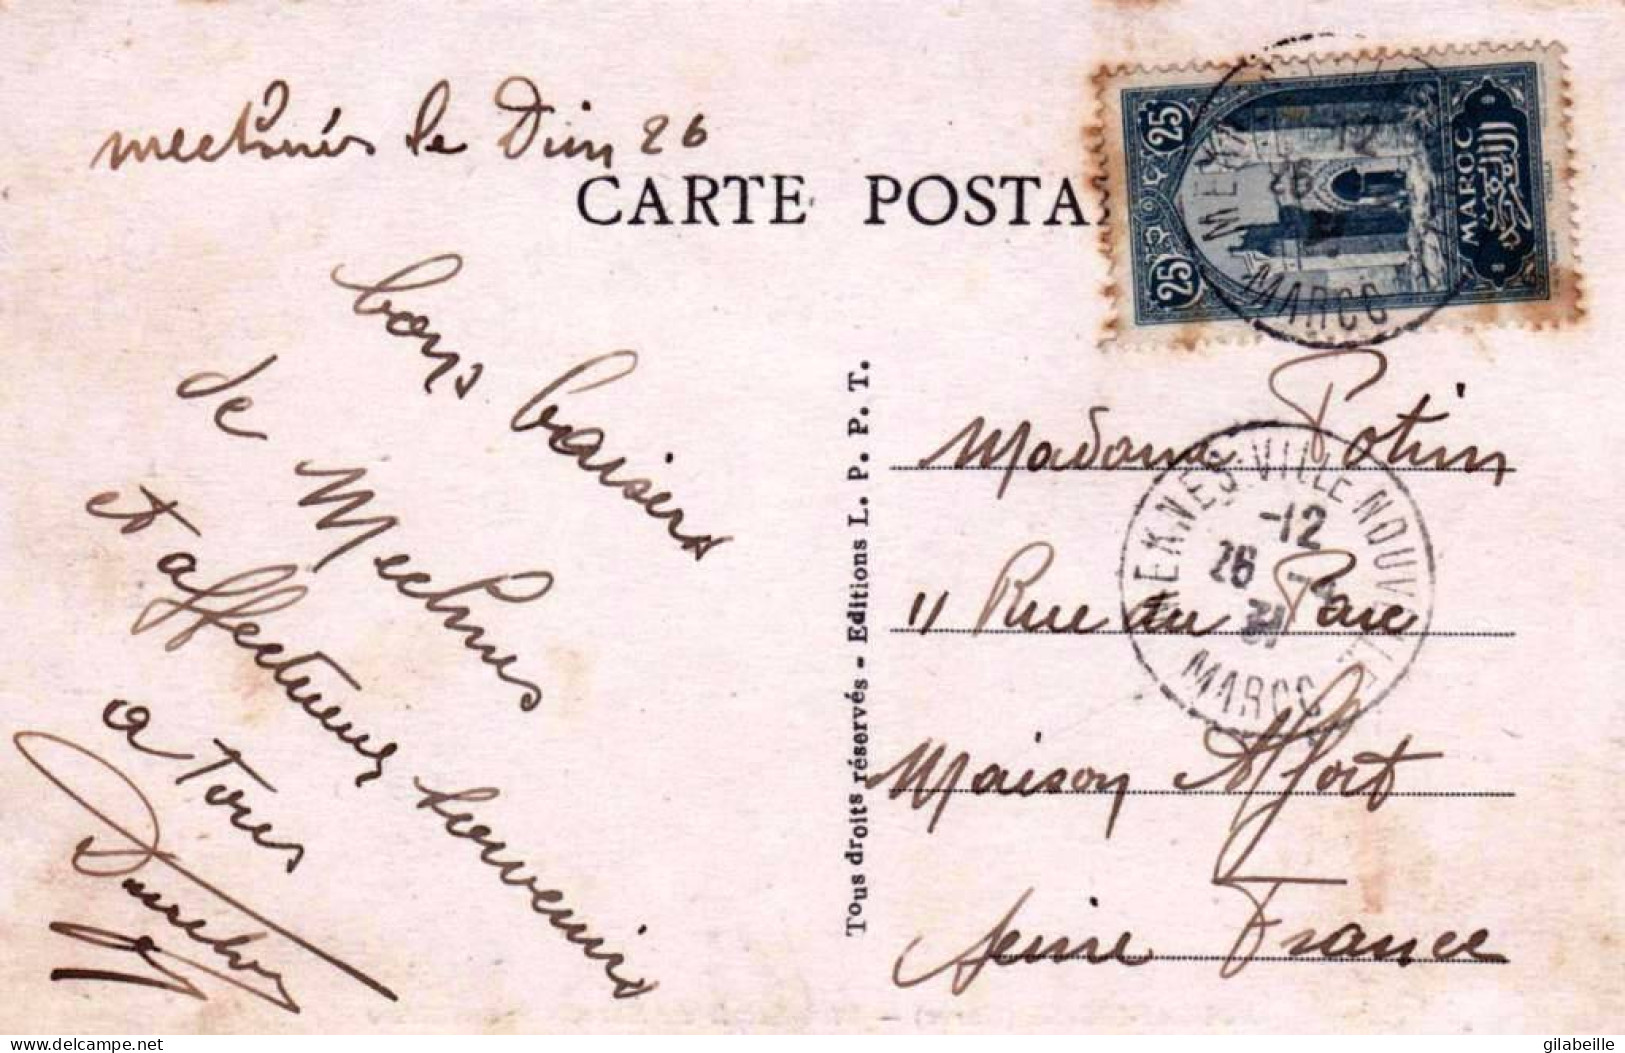 mechnés le Dim 26
CARTE POSTA
bons baisers
de Mechnes
et affectueux souvenirs
a tous
Tous droits réservés - Editions L. P. P. T.
25
25
MAROC
المغرب
MEKNES
-12
26
MAROC
Madame Potin
MEKNES-VILLE NOUVELLE
-12
26 -4
31
MAROC
11 Rue du Parc
Maison Alfort
Seine France
delcampe.net
gilabeille